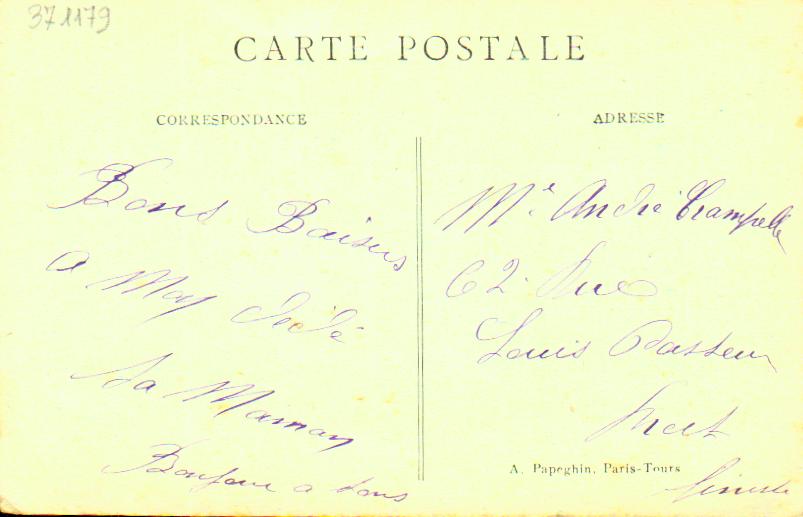 371179
CARTE POSTALE
CORRESPONDANCE
Bons Baisers
a Mon
Ta Maman
Bonjour a tous
ADRESSE
Mr André Crampelle
62 Rue
Louis Pasteur
A. Papeghin, Paris-Tours